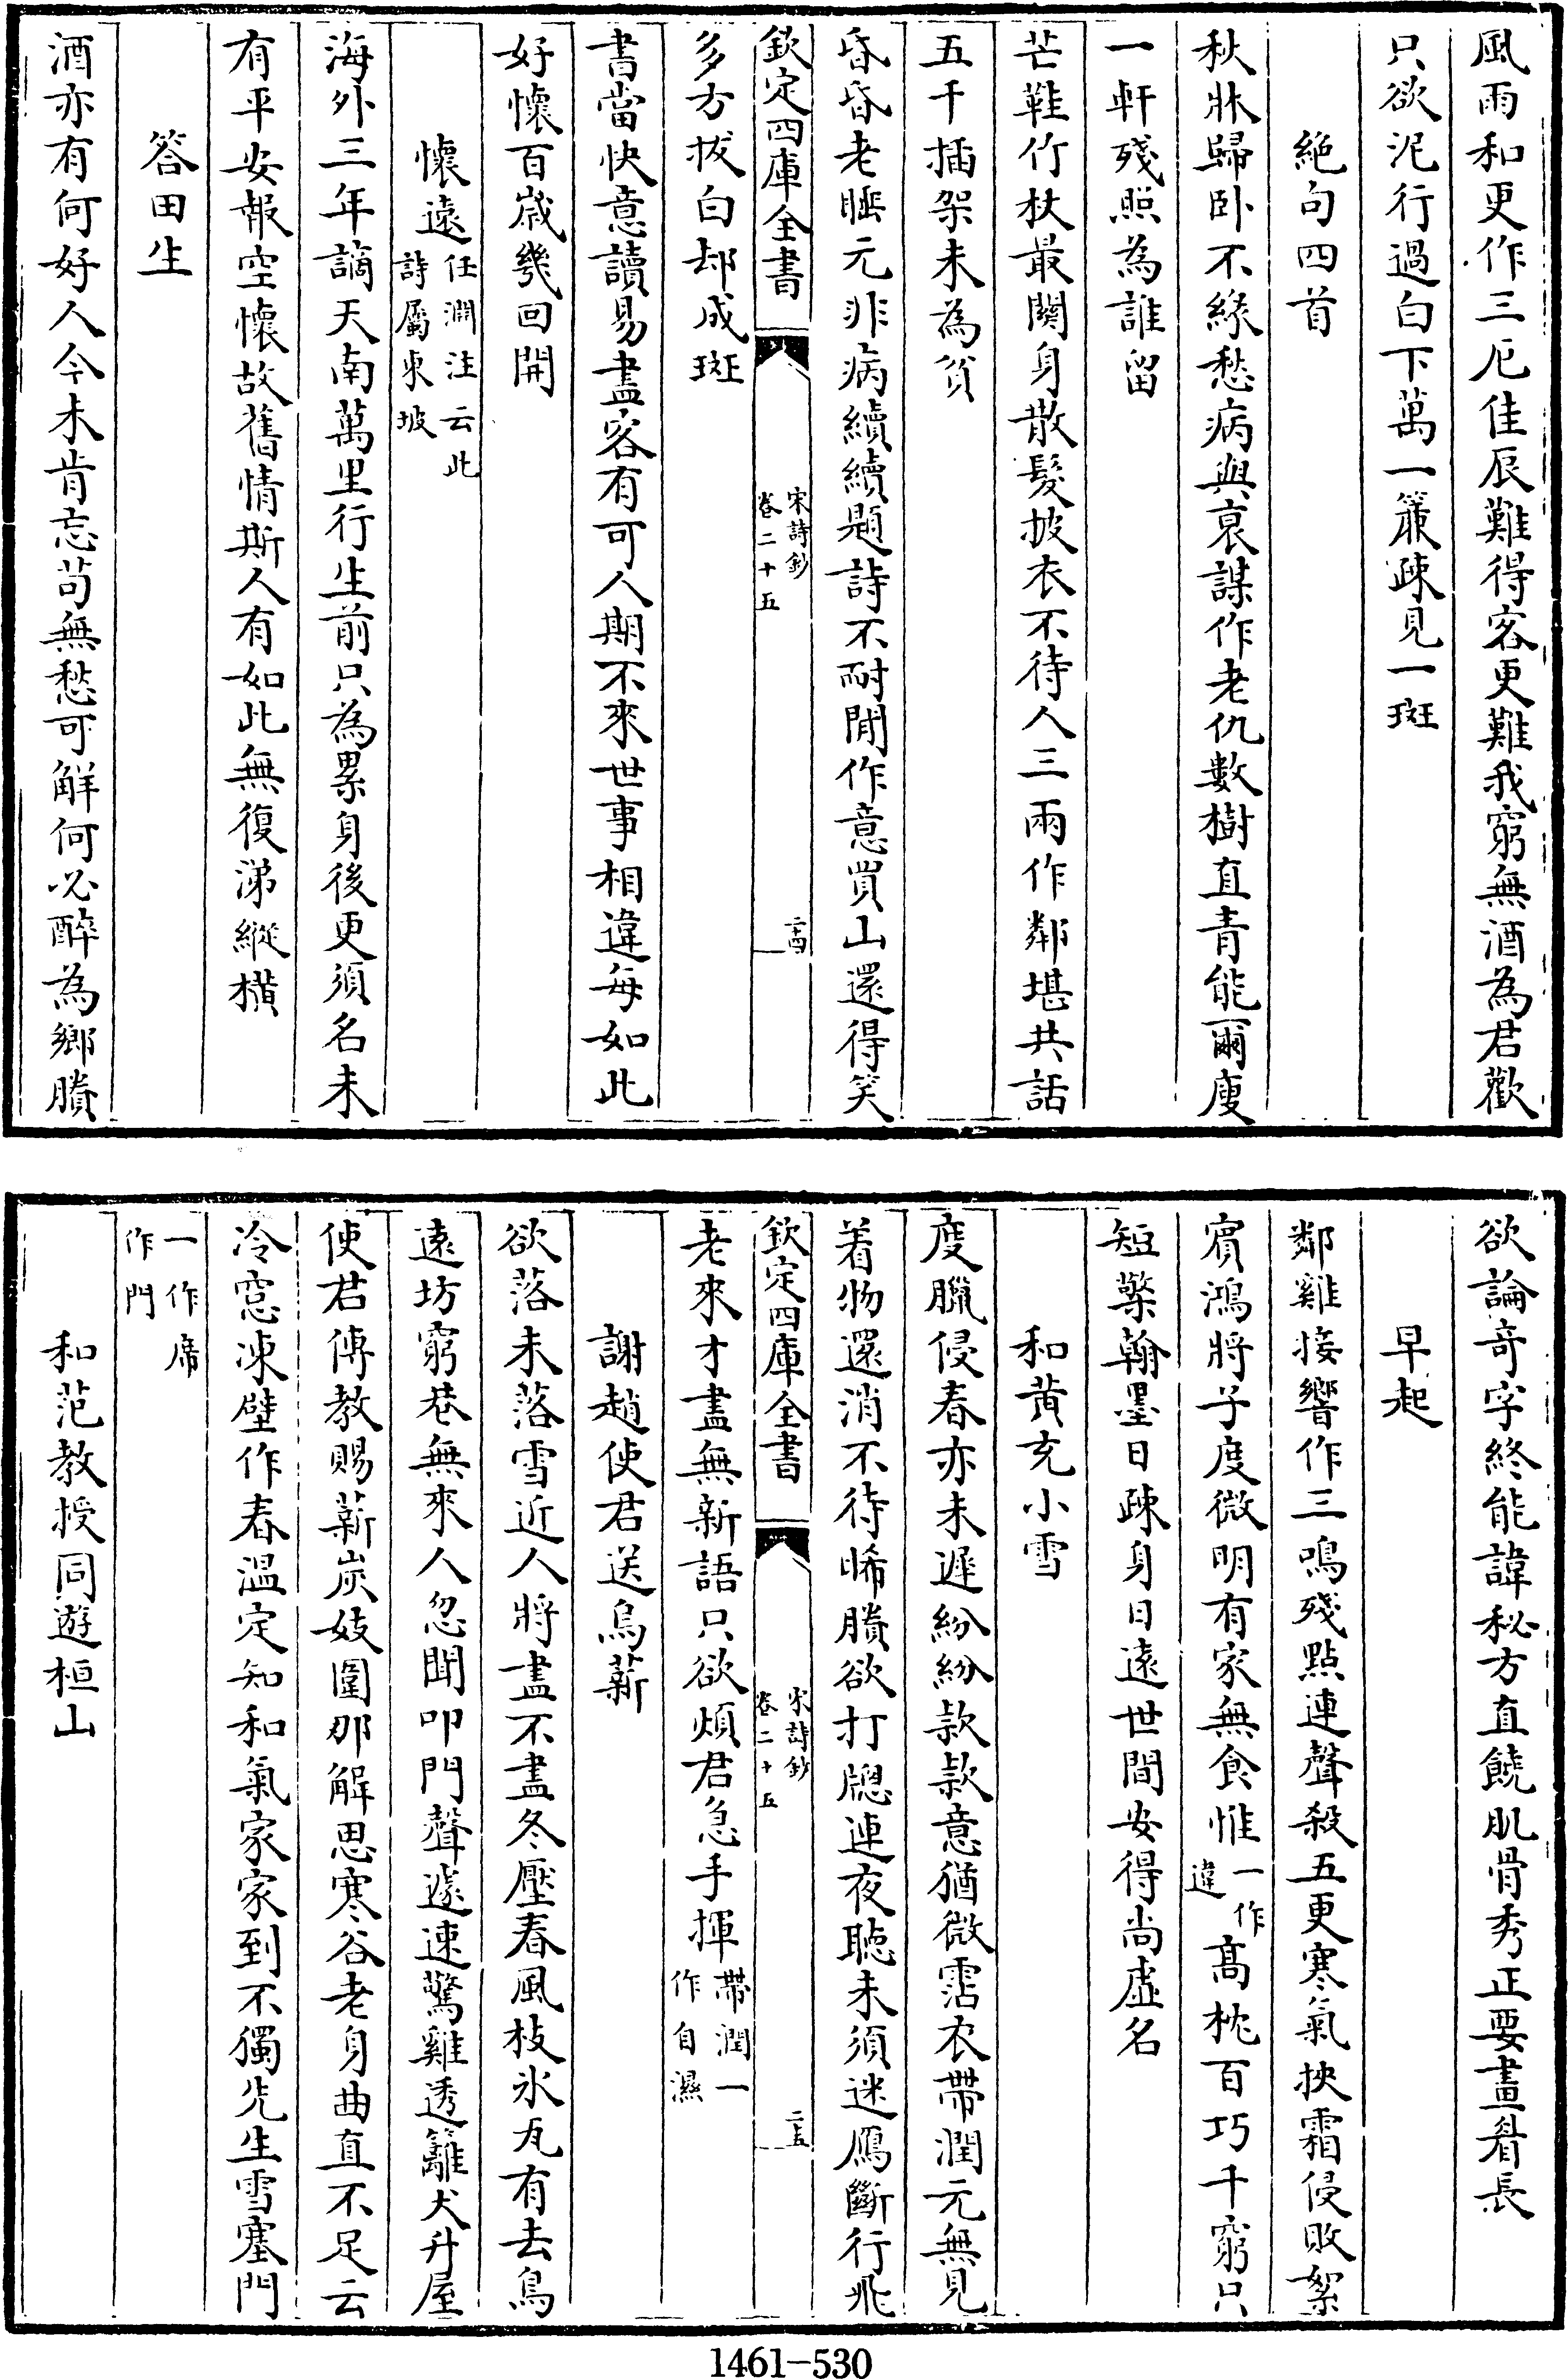 風雨和更作三厄佳辰難得客更難我窮無酒為君歡
只欲泥行過白下萬一簾疎見一斑
絶句四首
秋牀歸卧不縁愁病與衰謀作老仇數樹直青能爾廋
一軒殘照為誰留
芒鞋竹杖最關身散髮披衣不待人三兩作鄰堪共話
五千插架未為貧
昏昏老睡元非病續續題詩不耐閒作意買山還得笑
欽定四庫全書
宋詩鈔
卷二十五
二十四
多方拔白却成斑
書當快意讀易盡客有可人期不來世事相違每如此
好懷百歳幾回開
懷遠任淵注云此
詩屬東坡
海外三年謫天南萬里行生前只為累身後更須名未
有平安報空懷故舊情斯人有如此無復涕縱横
答田生
酒亦有何好人今未肯忘茍無愁可解何必醉為鄉賸
欲論竒字終能諱秘方直饒肌骨秀正要畫眉長
早起
鄰雞接響作三鳴殘點連聲殺五更寒氣挾霜侵敗絮
賔鴻將子度微明有家無食惟一作
違高枕百巧千窮只
短檠翰墨日疎身日遠世間安得尚虚名
和黄充小雪
度臘侵春亦未遲紛紛款款意猶微霑衣帶潤元無見
着物還消不待晞賸欲打䆫連夜聴未須迷鴈斷行飛
欽定四庫全書
宋詩鈔
卷二十五
二十五
老來才盡無新語只欲煩君急手揮帶潤一
作自濕
謝趙使君送烏薪
欲落未落雪近人將盡不盡冬壓春風枝氷瓦有去鳥
遠坊窮巷無來人忽聞叩門聲遽速驚雞透籬犬升屋
使君傳教賜薪炭妓圍那解思寒谷老身曲直不足云
冷窓凍壁作春温定知和氣家家到不獨先生雪塞門
一作席
作門
和范教授同遊桓山
1461-530